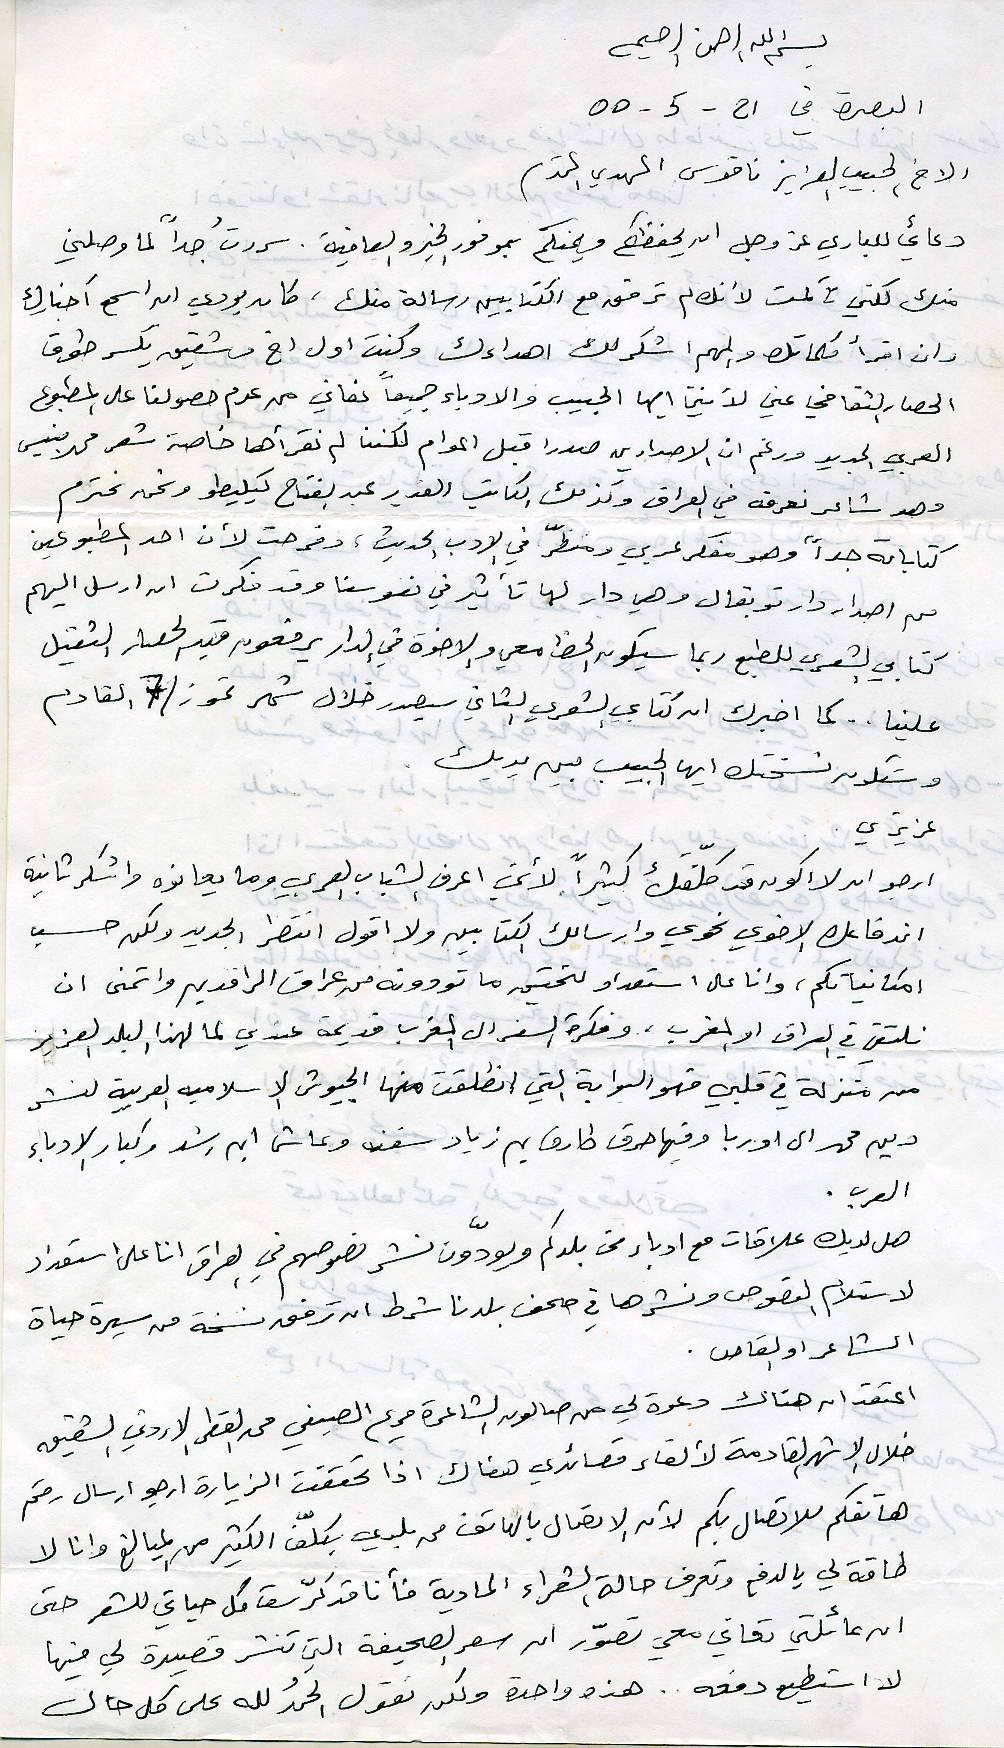 بسم الله الرحمن الرحيم
البصرة في
الاخ الحبيب العزيز ناقوس المهدي المحترم
دعائي للباري عز وجل ان يحفظكم ويمتعكم بموفور الخير والعافية . سررتُ جداً لما وصلني
منك لكني تألمت لأنك لم ترفق مع الكتابين رسالة منك ، كان بودي ان اسمع أخبارك
وان اقرأ كلماتك والمهم اشكر لك اهداءك وكنت اول اخ وشقيق يكسر طوق
الحصار الثقافي عني لأنني ايها الحبيب والادباء جميعاً نعاني من عدم حصولنا على المطبوع
العربي الجديد ورغم ان الاصدارين صدرا قبل اعوام لكننا لم نقرأها خاصة شعر محمد بنيس
وهو شاعر نعرفه في العراق وكذلك الكاتب القدير عبد الفتاح كيليطو ونحن نحترم
كتاباته جداً وهو مفكر عربي ومنظّر في الادب الحديث ، وفرحت لأن احد المطبوعين
من اصدار دار توبقال وهي دار لها تأثير في نفوسنا وقد فكرت ان ارسل اليهم
كتابي الشعري للطبع ربما سيكون الحظ معي والاخوة في الدار يرفعون قيد الحصار الثقيل
علينا .. كما اخبرك ان كتابي الشعري الثاني سيصدر خلال شهر تموز /7 القادم
وستكون نسختك ايها الحبيب بين يديك .
عزيزي .
ارجو ان لا اكون قد كلّفتك كثيراً لأنني اعرف الشباب العربي وما يعانوه واشكر ثانية
اندفاعك الاخوي نحوي وارسالك الكتابين ولا اقول انتظر الجديد ولكن حسب
امكانياتكم ، وانا على استعداد لتحقيق ما تودونه من عراق الرافدين واتمنى ان
نلتقي في العراق او المغرب ، وفكرة السفر الى المغرب قديمة عندي لما لهذا البلد العزيز
من منزلة في قلبي فهو البوابة التي انطلقت منها الجيوش الاسلامية العربية لنشر
دين محمد الى اوربا وفيها حرق طارق بن زياد سفنه وعاش ابن رشد وكبار الادباء
العرب .
هل لديك علاقات مع ادباء من بلدكم ويودّون نشر نصوصهم في العراق انا على استعداد
لاستلام النصوص ونشرها في صحف بلدنا شرط ان ترفق نسخة من سيرة حياة
الشاعر او القاص .
اعتقد ان هناك دعوة لي من صالون الشاعرة مريم الصيفي من القطر الاردني الشقيق
خلال الاشهر القادمة لألقاء قصائدي هناك اذا تحققت الزيارة ارجو ارسال رقم
هاتفكم للاتصال بكم لأن الاتصال بالهاتف من بلدي يكلّف الكثير من المبالغ وانا لا
طاقة لي بالدفع وتعرف حالة الشعراء المادية فأنا قد كرّست كل حياتي للشعر حتى
ان عائلتي تعاني معي تصوّر ان سعر الصحيفة التي تنشر قصيدة لي فيها
لا استطيع دفعه .. هذه واحدة ولكن نقول الحمدُ لله على كل حال